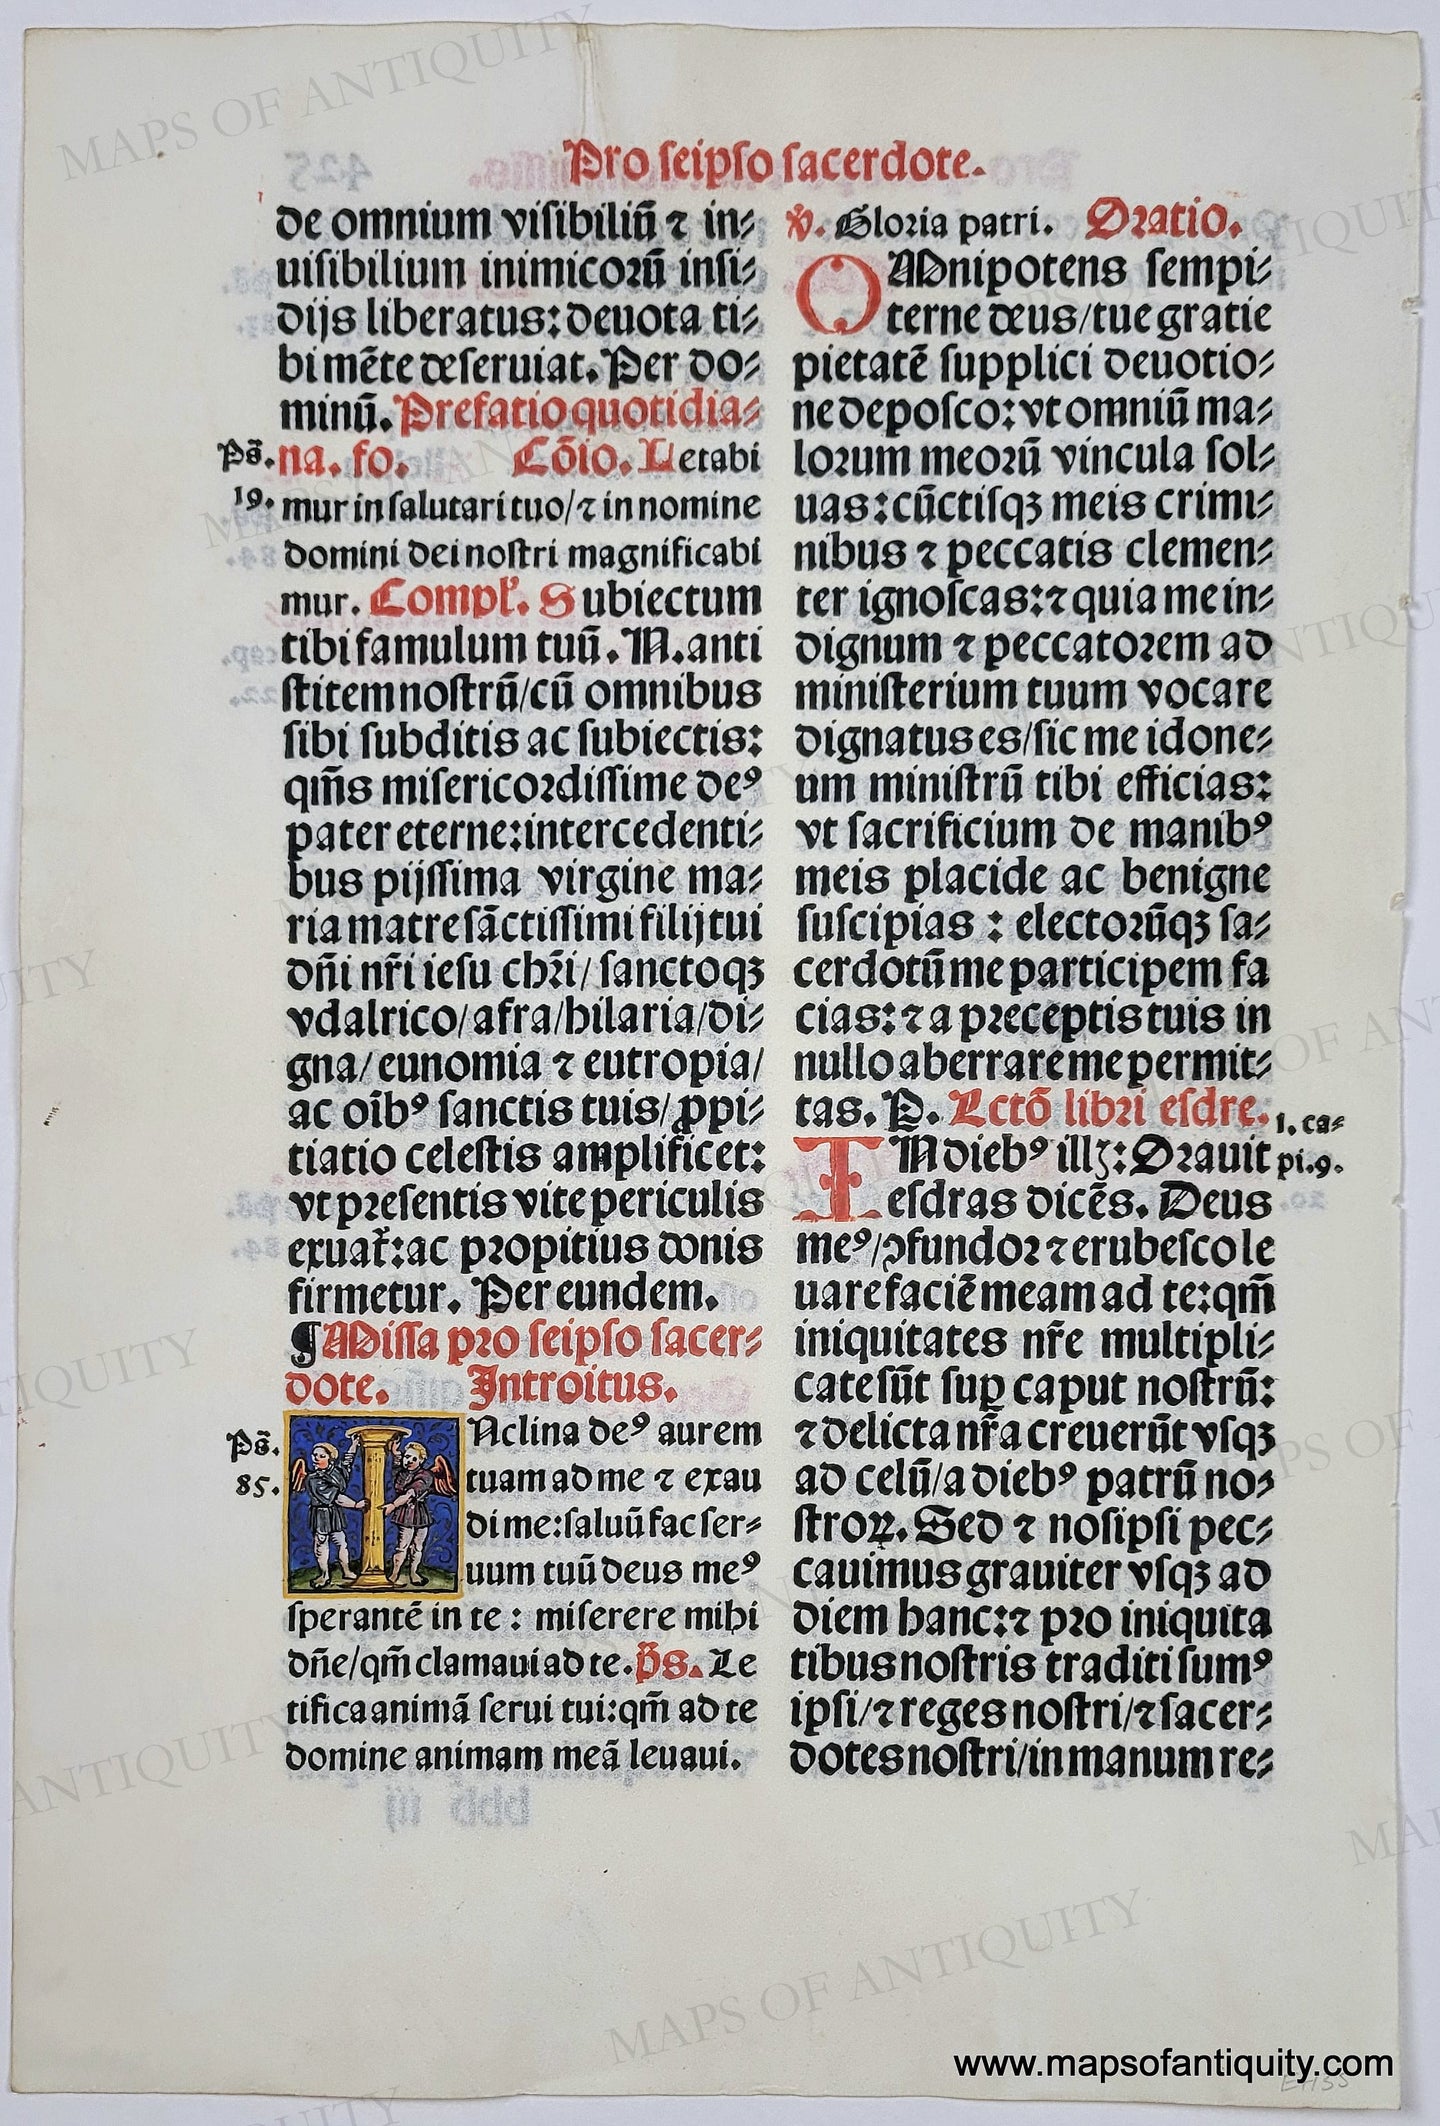 Pro seipso sacerdote.
de omnium visibiliū ⁊ in⸗
uisibilium inimicoꝛū insi⸗
dijs liberatus: deuota ti⸗
bi mēte deseruiat. Per do⸗
minū. Prefatio quotidia⸗
Ps̄. na. fo. Cōio. Letabi
19. mur in salutari tuo/ ⁊ in nomine
domini dei nostri magnificabi
mur. Compl'. Subiectum
tibi famulum tuū. N. anti
stitem nostrū/ cū omnibus
sibi subditis ac subiectis:
qm̄s misericoꝛdissime deꝰ
pater eterne: intercedenti⸗
bus pijssima virgine ma⸗
ria matre sāctissimi filij tui
dn̄i nr̄i iesu chꝛi/ sanctoqꝫ
vdalrico/ afra/ hilaria/ di⸗
gna/ eunomia ⁊ eutropia/
ac oībꝰ sanctis tuis/ ꝓpi⸗
tiatio celestis amplificet:
vt pꝛesentis vite periculis
exuat̄: ac pꝛopitius donis
firmetur. Per eundem.
¶ Missa pꝛo seipso sacer⸗
dote. Introitus.
Ps̄. INclina deꝰ aurem
85. tuam ad me ⁊ exau
di me: saluū fac ser⸗
uum tuū deus meꝰ
sperantē in te : miserere mihi
dn̄e/ qm̄ clamaui ad te. p̄s. Le
tifica animā serui tui: qm̄ ad te
domine animam meā leuaui.
℣. Gloꝛia patri. Oꝛatio.
OMnipotens sempi⸗
terne deus/ tue gratie
pietatē supplici deuotio⸗
ne deposco: vt omniū ma⸗
loꝛum meoꝛū vincula sol⸗
uas: cūctisqꝫ meis crimi⸗
nibus ⁊ peccatis clemen⸗
ter ignoscas: ⁊ quia me in⸗
dignum ⁊ peccatoꝛem ad
ministerium tuum vocare
dignatus es/ sic me idone⸗
um ministrū tibi efficias:
vt sacrificium de manibꝰ
meis placide ac benigne
suscipias : electoꝛūqꝫ sa⸗
cerdotū me participem fa
cias: ⁊ a pꝛeceptis tuis in
nullo aberrare me permit⸗
tas. P. Lctō libꝛi esdre. 1. ca⸗
IN diebꝰ illꝫ: Oꝛauit pi. 9.
esdras dicēs. Deus
meꝰ/ ꝯfundoꝛ ⁊ erubesco le
uare faciē meam ad te: qm̄
iniquitates nr̄e multipli⸗
cate sūt suꝑ caput nostrū:
⁊ delicta nr̄a creuerūt vsqꝫ
ad celū/ a diebꝰ patrū no⸗
stroꝝ. Sed ⁊ nosipsi pec⸗
cauimus grauiter vsqꝫ ad
diem hanc: ⁊ pꝛo iniquita
tibus nostris traditi sumꝰ
ipsi/ ⁊ reges nostri/ ⁊ sacer⸗
dotes nostri/ in manum re⸗
MAPS OF ANTIQUITY
www.mapsofantiquity.com